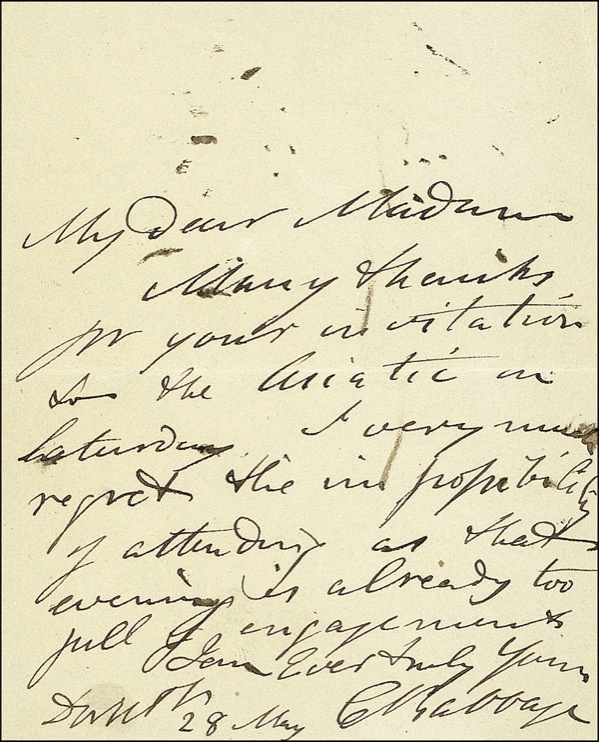 My Dear Madam
Many thanks
for your invitation
to the Asiatic on
Saturday I very much
regret the impossibility
of attending as that
evening is already too
full of engagements
I am Ever truly Yours
28 May C Babbage